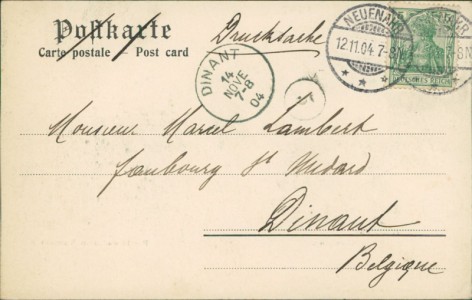 Postkarte Drucksache
Carte postale – Post card
NEUENAHR
12.11.04.7-8N
DINANT
14
NOVE
7-8
04
DEUTSCHES REICH
Monsieur Marcel Lambert
faubourg St Medard
Dinant
Belgique